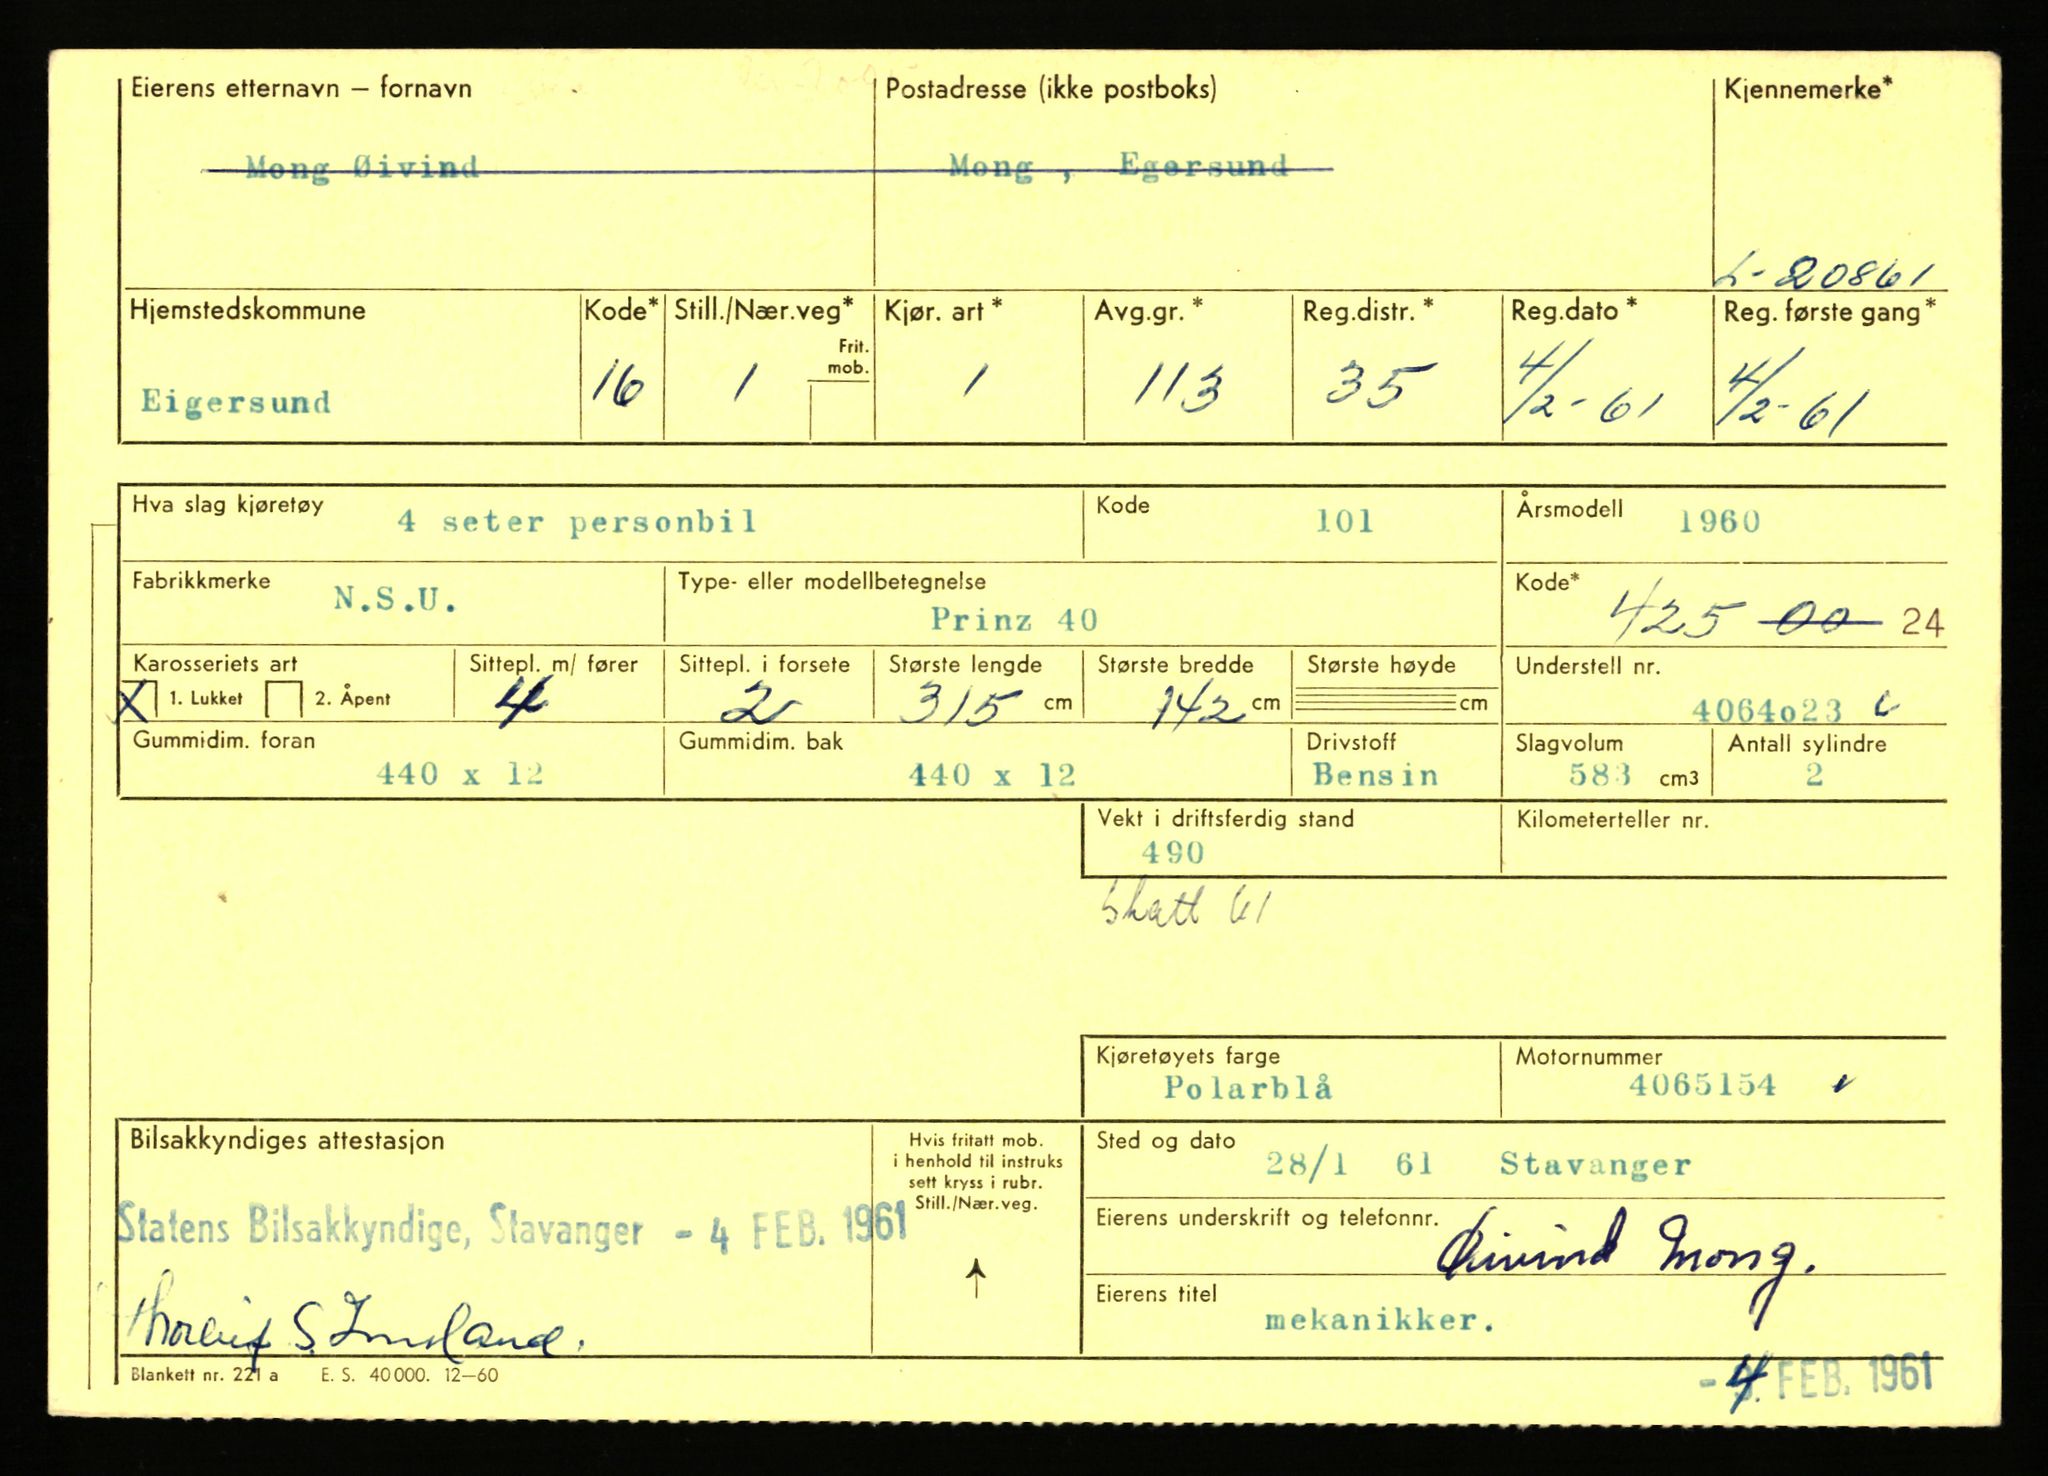 Eierens etternavn – fornavn Postadresse (ikke postboks) Kjennemerke*
Mong Øivind Mong , Egersund
L-20861
Hjemstedskommune Kode* Still./Nær.veg* Kjør. art * Avg.gr. * Reg.distr. * Reg.dato * Reg. første gang*
Frit.
mob.
Eigersund 16 1 1 113 35 4/2-61 4/2-61
Hva slag kjøretøy 4 seter personbil Kode 101 Årsmodell 1960
Fabrikkmerke N.S.U. Type- eller modellbetegnelse Prinz 40 Kode* 425 00 24
Karosseriets art Sittepl. m/ fører Sittepl. i forsete Største lengde Største bredde Største høyde Understell nr.
X 1. Lukket 2. Åpent 4 2 315 cm 142 cm cm 4064o23
Gummidim. foran Gummidim. bak Drivstoff Slagvolum Antall sylindre
440 x 12 440 x 12 Bensin 583 cm3 2
Vekt i driftsferdig stand Kilometerteller nr.
490
Skatt 61
Kjøretøyets farge Motornummer
Polarblå 4065154
Bilsakkyndiges attestasjon Hvis fritatt mob.
i henhold til instruks
sett kryss i rubr.
Still./Nær.veg.
Sted og dato 28/1 61 Stavanger
Statens Bilsakkyndige, Stavanger - 4 FEB. 1961
Eierens underskrift og telefonnr. Øivind Mong.
Eierens titel
mekanikker.
S.
Blankett nr. 221 a E. S. 40000. 12–60
- 4. FEB. 1961